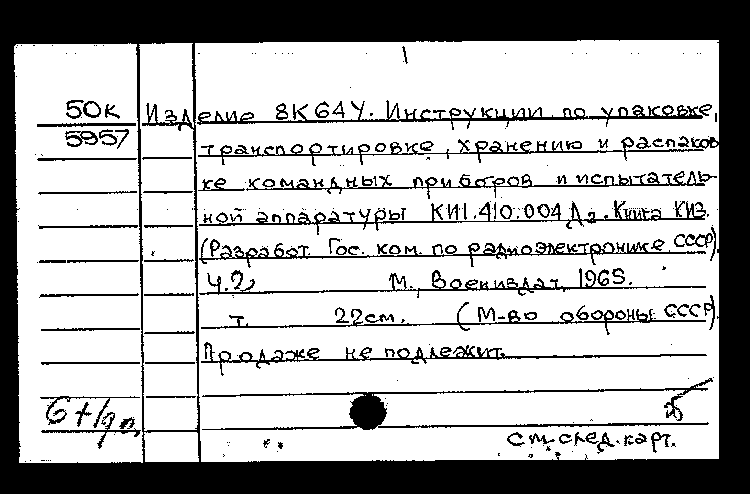 50к Изделие 8К64У. Инструкции по упаковке,
5957 транспортировке, хранению и распаков
ке командных приборов и испытатель-
ной аппаратуры КИ1.410.004 Д2. Книга КИЗ.
(Разработ. Гос. ком. по радиоэлектронике СССР).
Ч.2, М., Воениздат, 1965.
т. 22см. (М-во обороны СССР).
Продаже не подлежит.
см. след. карт.